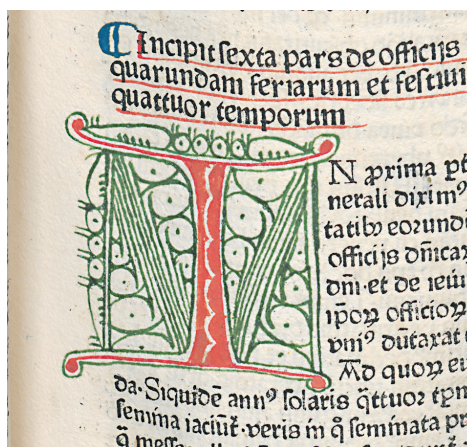 Incipit sexta pars de officijs
quarundam feriarum et festiui
quattuor temporum
IN ꝓxima ꝑt
nerali diximꝰ
tatibꝰ eorund
officijs dñica
dñi·et de ieiu
ip̃oꝝ officioꝝ
vniꝰ dũtaxat
Ad quoꝝ
da·Siquidẽ annꝰ solaris q̃ttuor tp̃
semina iaciũt·veris in q̃ seminata